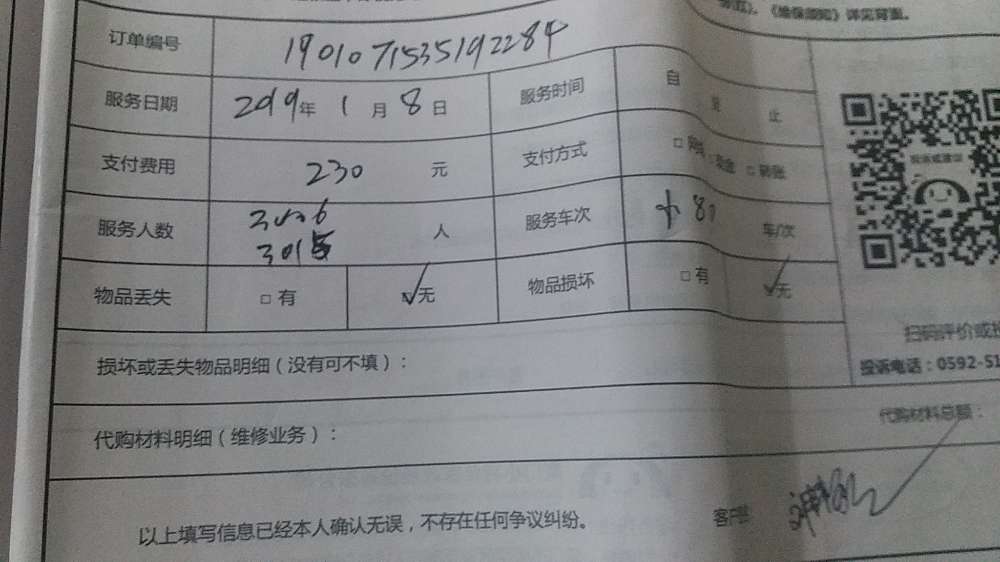 《维保须知》详见背面。
订单编号 1901071535192284
服务日期 2019年 1月 8日 服务时间 自 至 止
支付费用 230 元 支付方式 □ □现金 □转账
服务人数 人 服务车次 车/次
3015
物品丢失 □有 ✓无 物品损坏 □有 ✓无
扫码评价或投
损坏或丢失物品明细（没有可不填）：
投诉电话：0592-51
代购材料明细（维修业务）： 代购材料总额：
以上填写信息已经本人确认无误，不存在任何争议纠纷。 客户